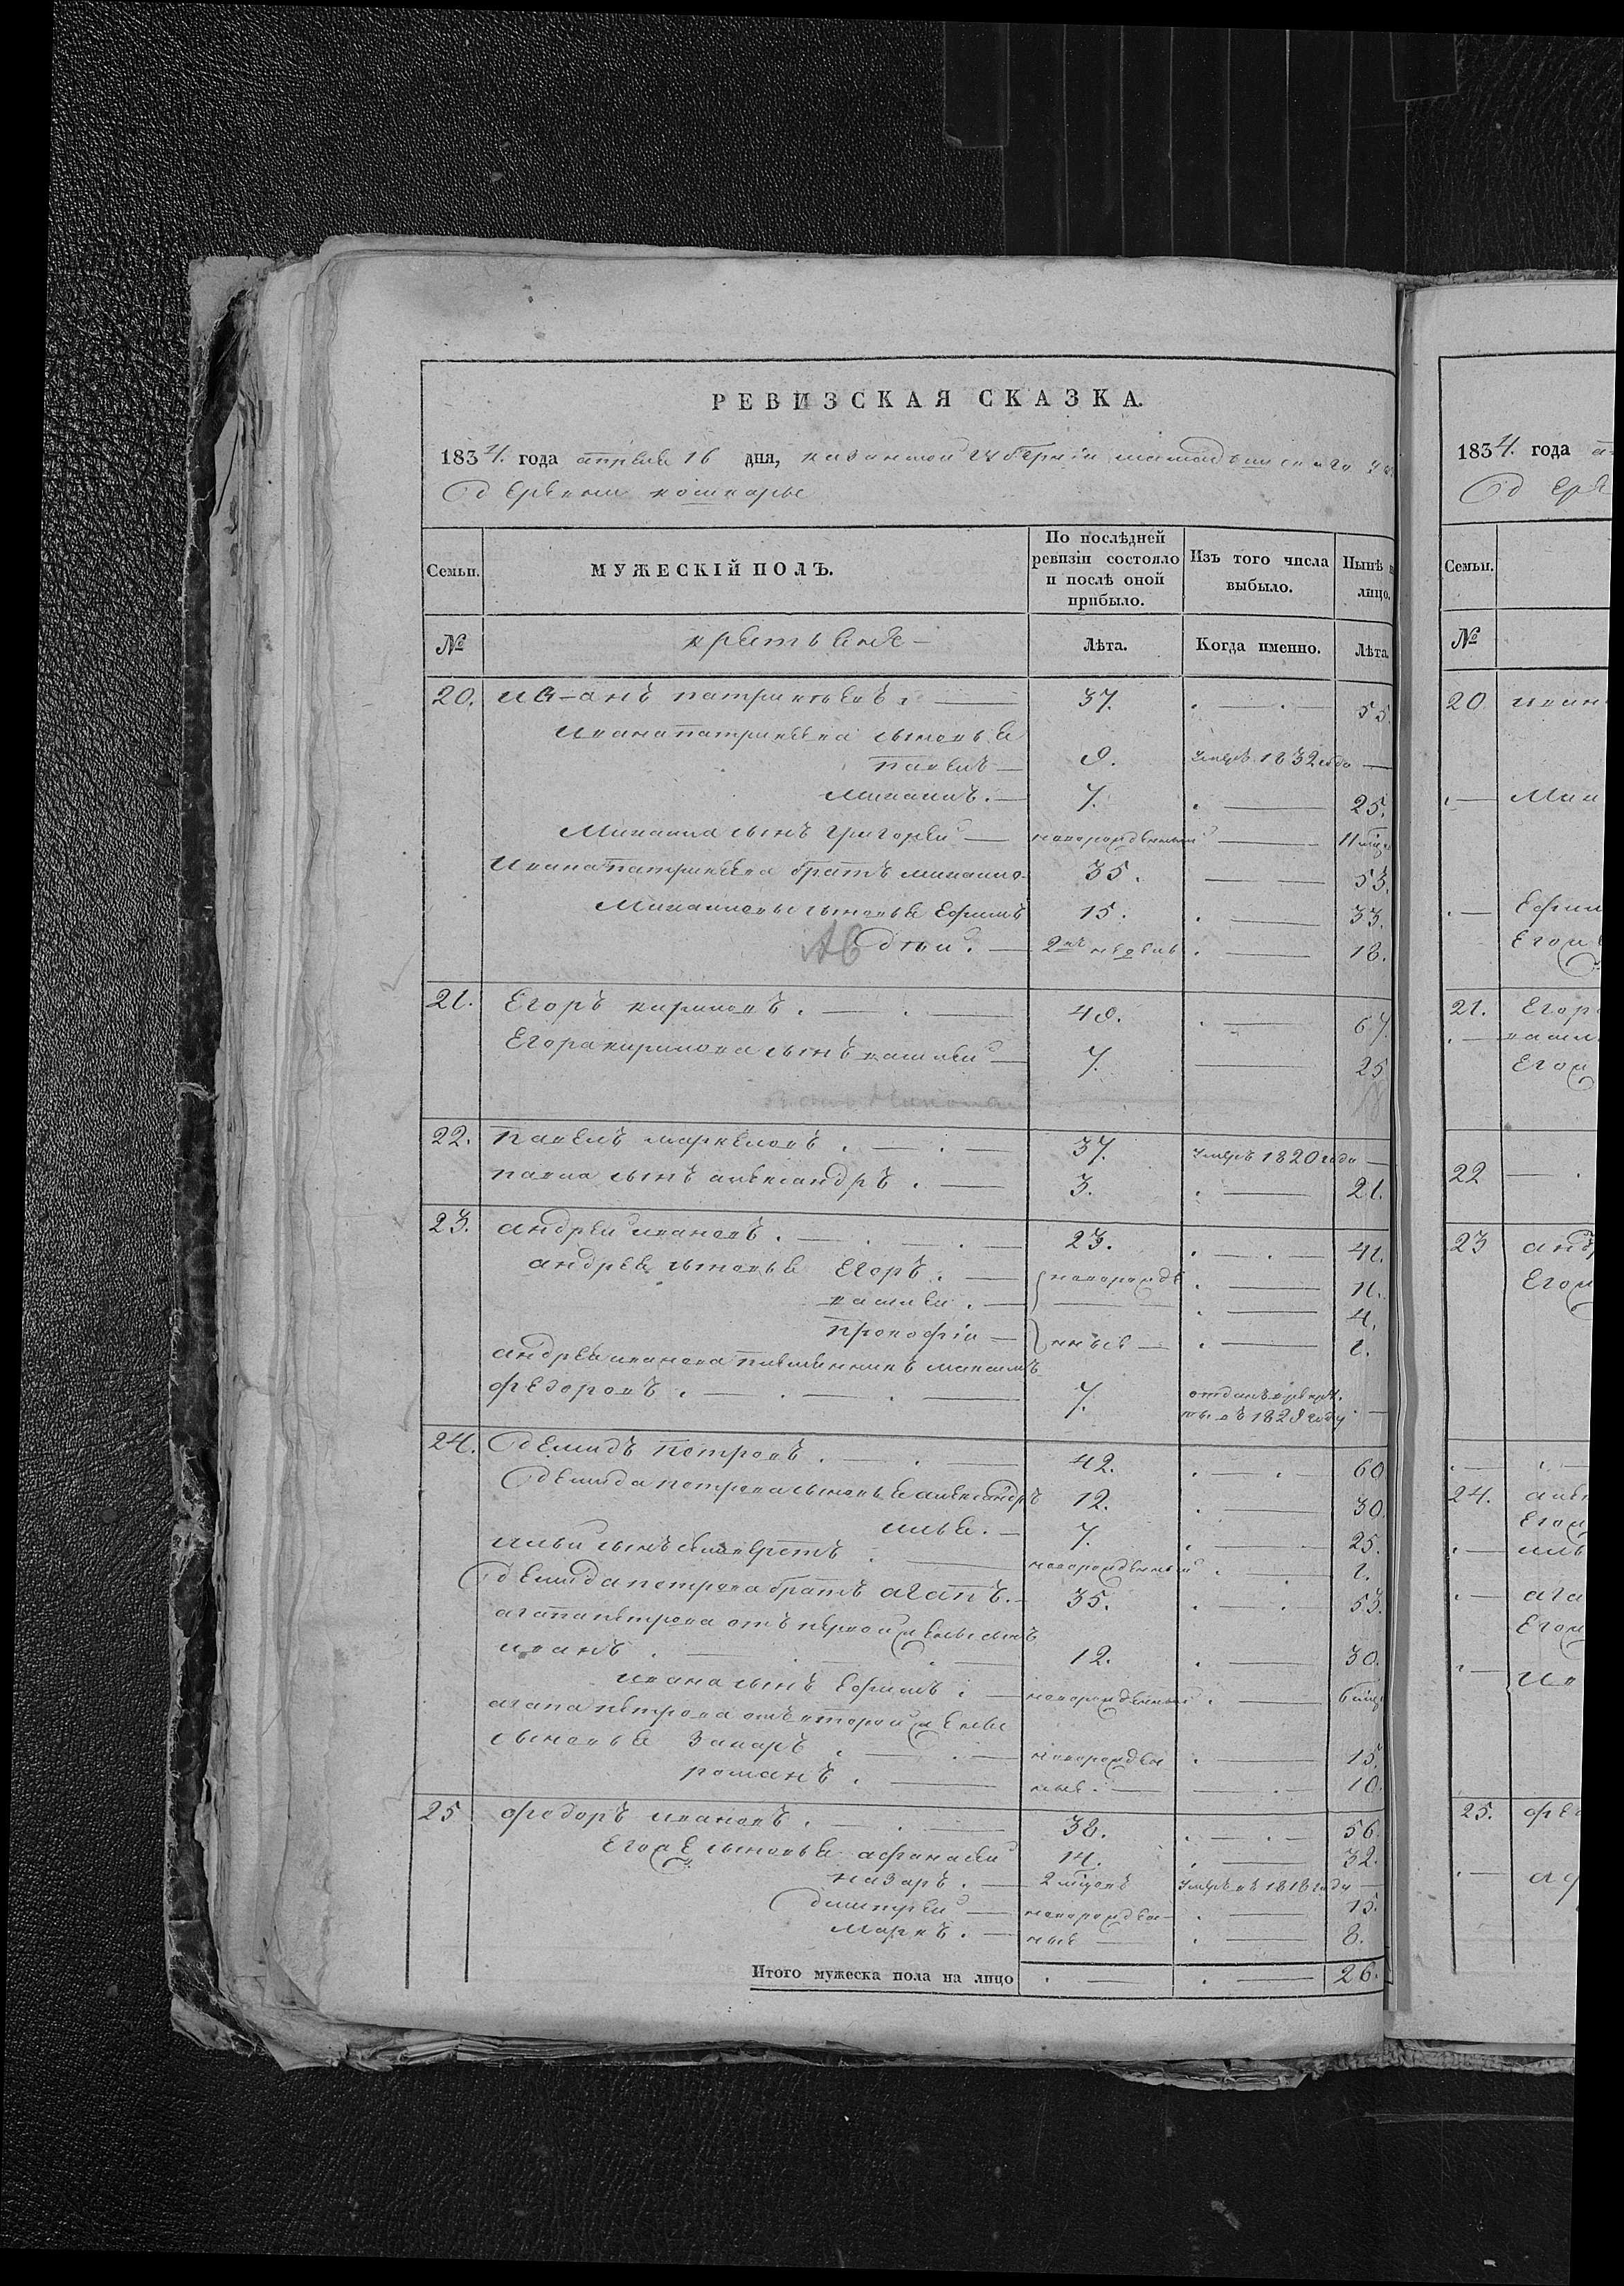 РЕВИЗСКАЯ СКАЗКА.
1834. года апреля 16 дня, казанской губернiи мамадышскаго
деревни кошкарье
Семьи. МУЖЕСКIЙ ПОЛЪ. По послѣдней ревизiи состояло и послѣ оной прибыло. Изъ того числа выбыло. Нынѣ лицо.
№ крестьяне Лѣта. Когда именно. Лѣта.
20. Иванъ патрикѣевъ. 37. 55.
Ивана патрикѣева сыновья
павелъ 9. умеръ 1832 года
Михаилъ. 7. 25.
Михаила сынъ григорей новорожденный 11 мцъ
Ивана патрикеева братъ михаило 35. 53.
Михаиловы сыновья Ефимъ 15. 33.
Ав дѣй. 18.
21. Егоръ кириловъ. 49. 67.
Егора кирилова сынъ василей 7. 25
22. павелъ маркеловъ. 37. умеръ 1820 года
павла сынъ александръ. 3. 21.
23. андрей ивановъ. 23. 41.
андрея сыновья Егоръ. новорожде 11.
василей. 4.
прокофiй нные 1.
андрея иванова племянникъ максимъ
федоровъ. 7. отданъ в рекру
ты въ 1828 году
24. демидъ петровъ. 42. 60
демида петрова сыновья александръ 12. 30.
илья. 7. 25.
ильи сынъ новорожденный 1.
демида петрова братъ агапъ. 35. 53.
агапа петрова отъ первой жены сынъ
иванъ. 12. 30.
ивана сынъ Ефимъ. новорожденный 6 мцъ
агапа петрова отъ второй жены
сыновья Захаръ. новорожден 15.
романъ. ные. 10.
25 федоръ ивановъ. 38. 56.
Его же сыновья афанасей 14. 32.
назаръ. 2 мцовъ умеръ въ 1818 году
дмитрей новорожден 15.
Маркъ. ные 8.
Итого мужеска пола на лицо 26.
1834. года
Семьи.
№
20 иван
Мих
Ефим
Егож
21. Егор
васил
Егож
22
23 анд
Егож
24. алек
Егож
иль
ага
Егож
Ив
25. фед
аф